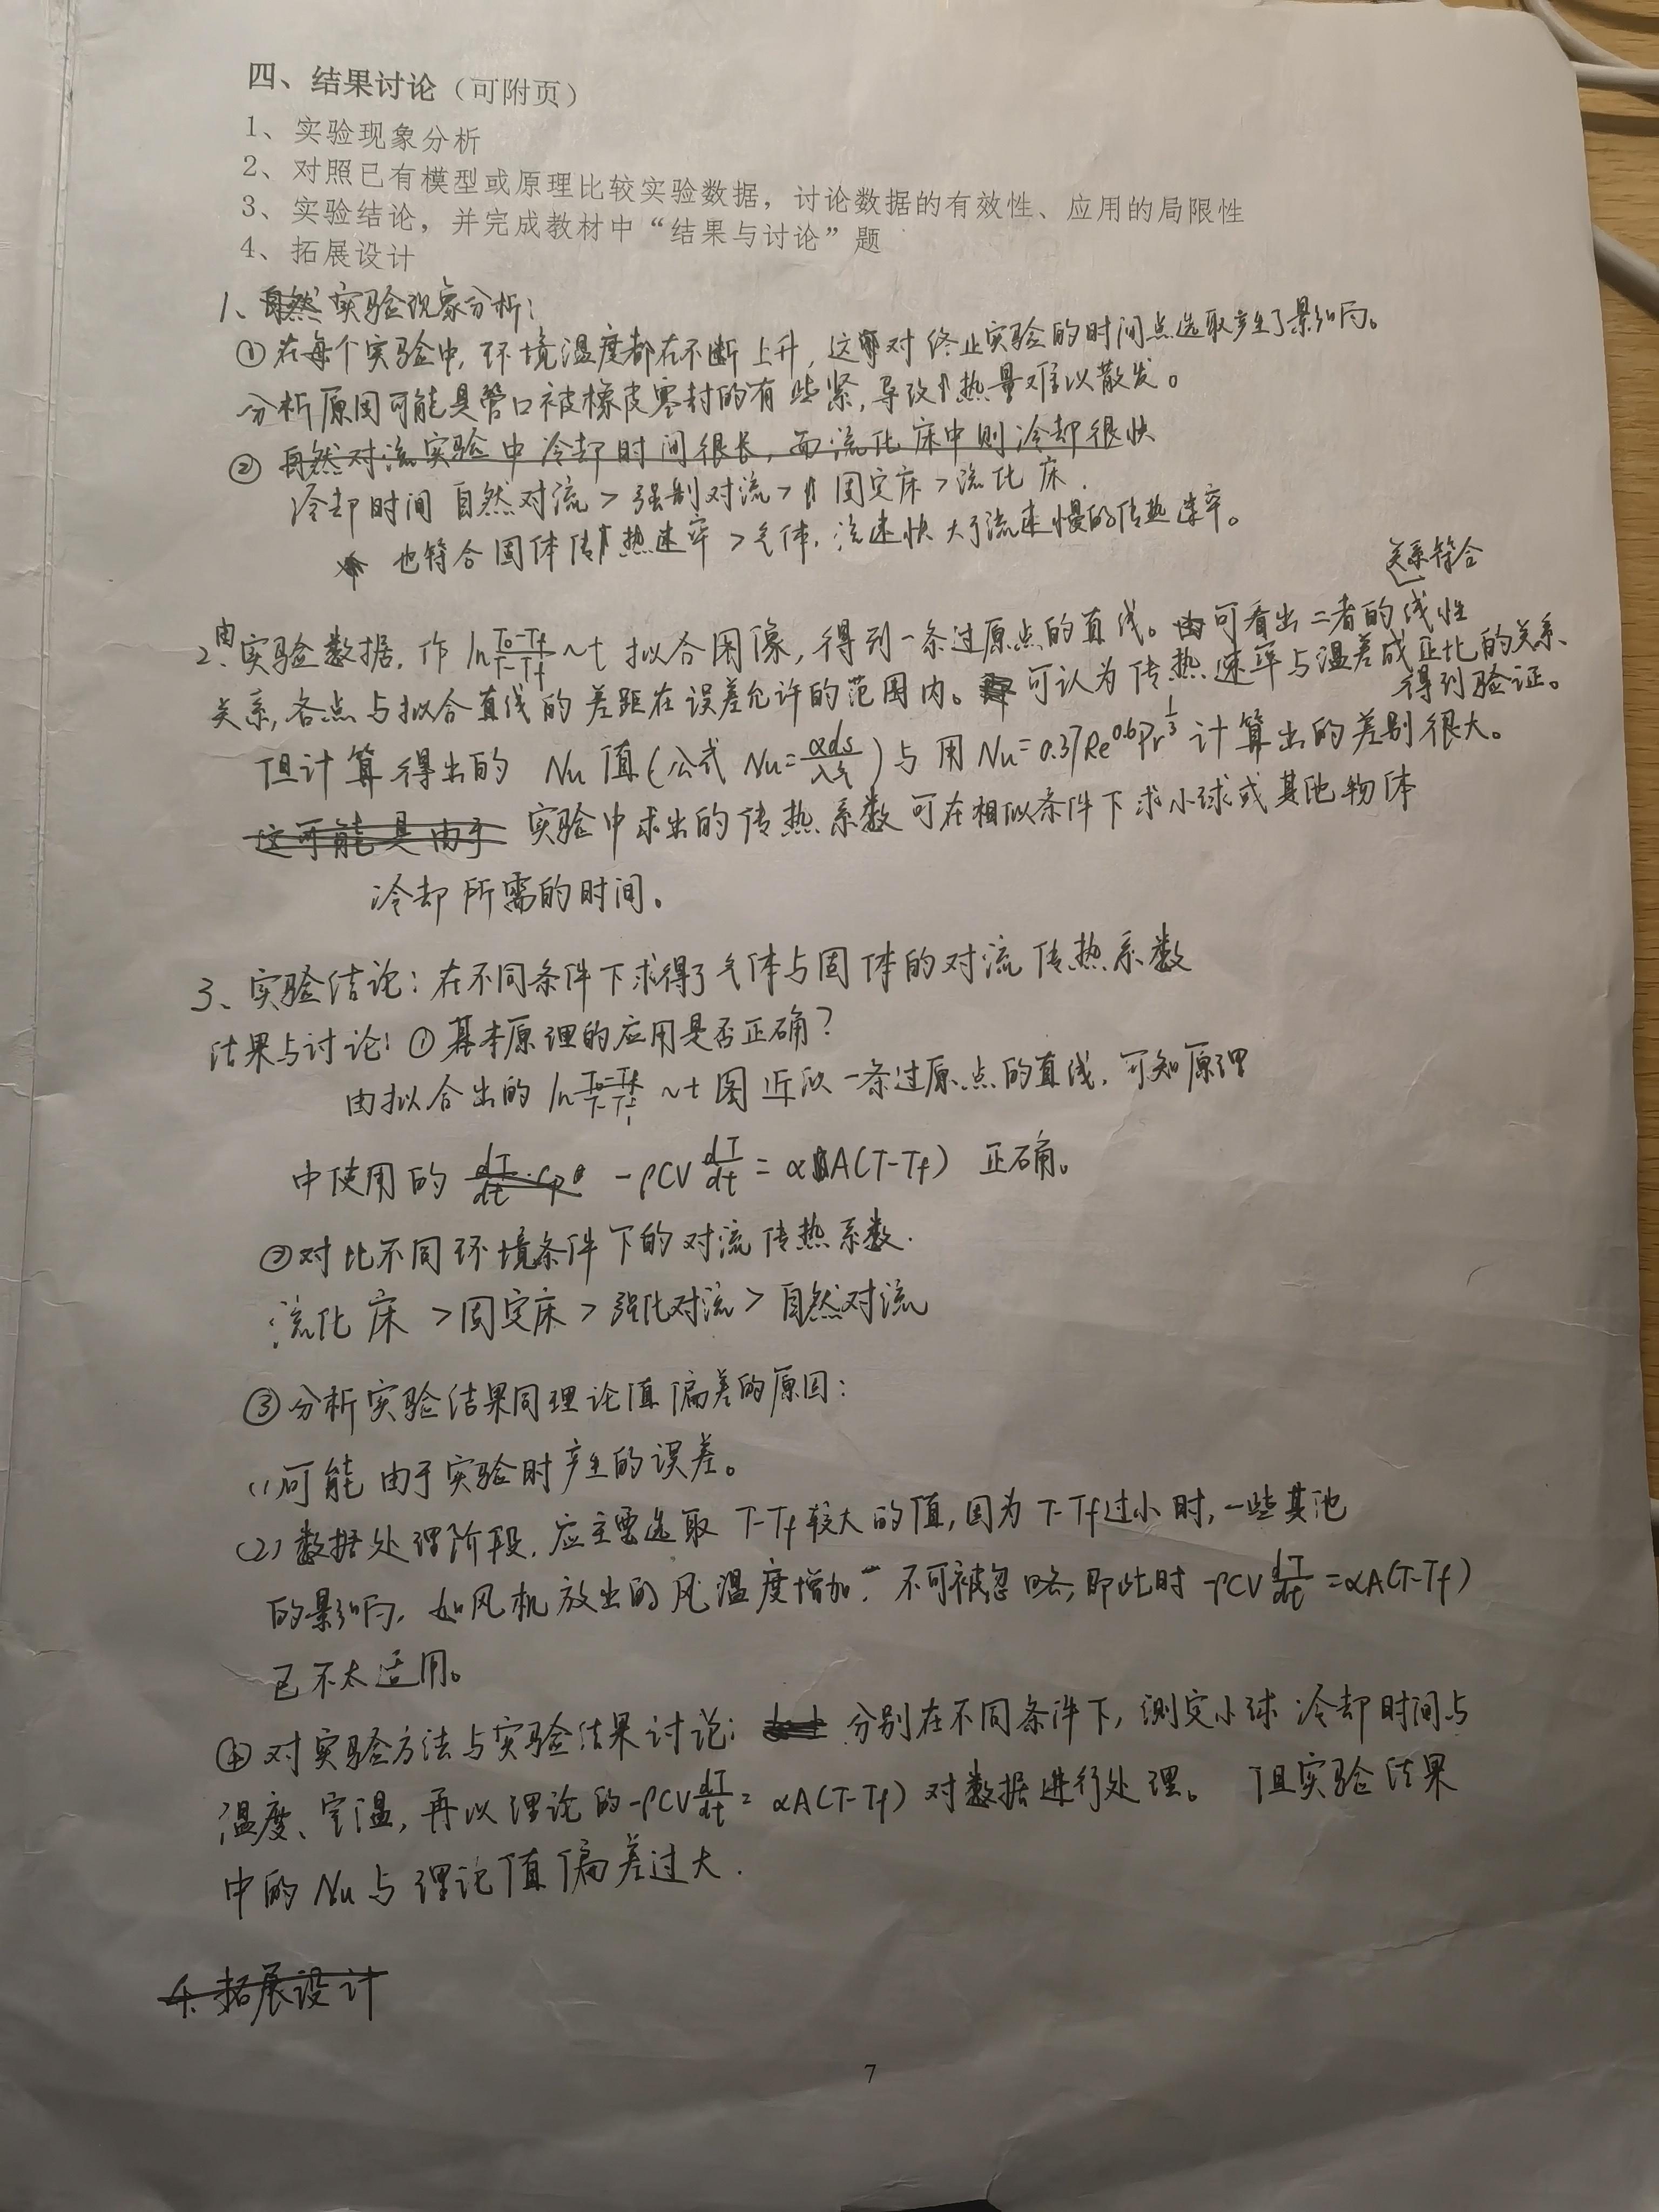 四、结果讨论（可附页）
1、实验现象分析
2、对照已有模型或原理比较实验数据，讨论数据的有效性、应用的局限性
3、实验结论，并完成教材中“结果与讨论”题
4、拓展设计
1、自然 实验现象分析：
① 在每个实验中，环境温度都在不断上升，这 对终止实验的时间点选取产生了影响。
分析原因可能是管口被橡皮塞封的有些紧，导致热量难以散发。
② 自然对流实验中冷却时间很长，而流化床中则冷却很快
冷却时间 自然对流 > 强制对流 > 固定床 > 流化床.
也符合固体传热速率 > 气体，流速快大于流速慢的传热速率。
关系符合
2、由实验数据，作 ln (T0-Tf)/(T-Tf) ~t 拟合图像，得到一条过原点的直线。可看出二者的线性
关系，各点与拟合直线的差距在误差允许的范围内。可认为传热速率与温差成正比的关系
得到验证。
但计算得出的 Nu 值（公式 Nu=αds/λ）与用 Nu=0.37Re^0.6Pr^1/3 计算出的差别很大。
这可能是由于 实验中求出的传热系数可在相似条件下求小球或其他物体
冷却所需的时间。
3、实验结论：在不同条件下求得了气体与固体的对流传热系数
结果与讨论：① 基本原理的应用是否正确？
由拟合出的 ln (T0-Tf)/(T-Tf) ~t 图近似一条过原点的直线，可知原理
中使用的 dT/dt·Cp -ρCV dT/dt = αA(T-Tf) 正确。
② 对比不同环境条件下的对流传热系数.
流化床 > 固定床 > 强化对流 > 自然对流
③ 分析实验结果同理论值偏差的原因：
(1) 可能由于实验时产生的误差。
(2) 数据处理阶段，应主要选取 T-Tf 较大的值，因为 T-Tf 过小时，一些其他
的影响，如风机放出的风温度增加，不可被忽略，即此时 -ρCV dT/dt = αA(T-Tf)
已不太适用。
④ 对实验方法与实验结果讨论： 分别在不同条件下，测定小球冷却时间与
温度、室温，再以理论的 -ρCV dT/dt = αA(T-Tf) 对数据进行处理。但实验结果
中的 Nu 与理论值偏差过大.
4. 拓展设计
7